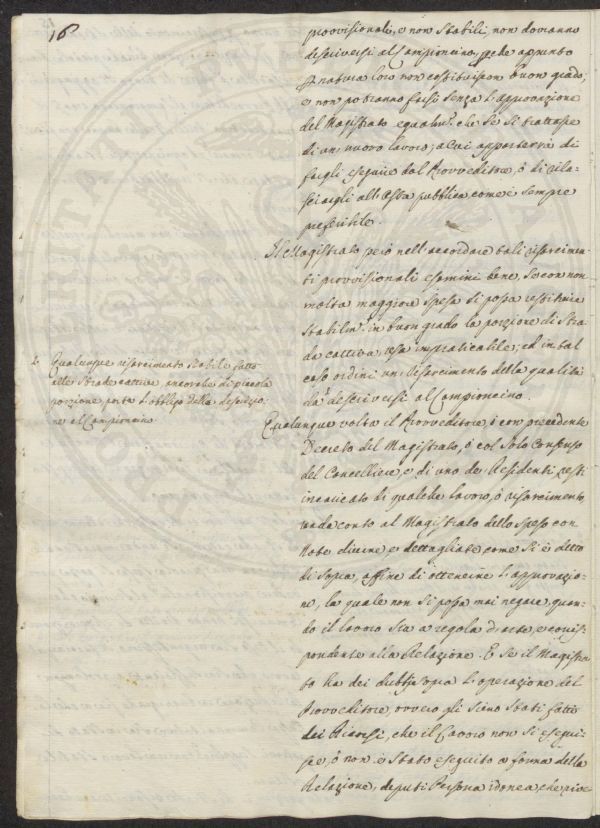 16
provvisionali, e non stabili, non dovranno
descriversi al Campioncino, che appunto
natura loro non costituiscon buon grado;
e non potranno farsi senza l'approvazione
del Magistrato egualm.e che se si trattasse
di un nuovo lavoro, a cui apparterrà di
fargli eseguire dal Provveditore, ó di rila=
sciargli all'Asta pubblica come è sempre
preferibile.
Il Magistrato però nell'accordare tali risarcimen=
ti provvisionali esamini bene, se con non
molta maggiore spesa si possa restituire
stabilm.e in buon grado la porzione di Stra
da cattiva, resa impraticabile; ed in tal
caso ordini un risarcimento della qualità
da descriversi al Campioncino.
2. Qualunque risarcimento stabile fatto
alle Strade cattive, ancorche di piccola
porzione porta l'obbligo della descrizio=
ne al Campioncino
Qualunque volta il Provveditore, ó con precedente
Decreto del Magistrato, ó col solo Consenso
del Cancelliere, e di uno de Residenti resti
incaricato di qualche lavoro, ó risarcimento
renda conto al Magistrato dello speso con
Note divise e dettagliate come si è detto
di sopra, affine di ottenerne l'approvazio=
ne, la quale non si possa mai negare, quan=
do il lavoro sia a regola d'arte, e corris=
pondente alla Relazione. E se il Magistra
to ha dei dubbj sopra l'operazione del
Provveditore, ovvero gli siano stati fatti
dei Ricorsi, che il lavoro non si esegui=
sce, ó non è stato eseguito a forma della
Relazione, deputi Persona idonea, che rive